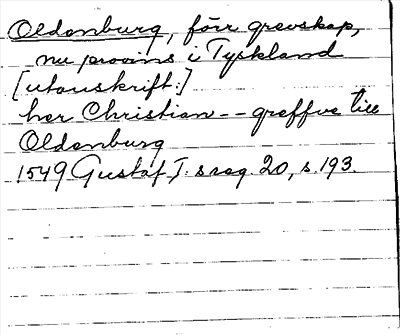 Oldenburg, förr grevskap,
nu provins i Tyskland
[utanskrift:]
her Christian -- greffve till
Oldenburg
1549 Gustaf I:s reg. 20, s. 193.